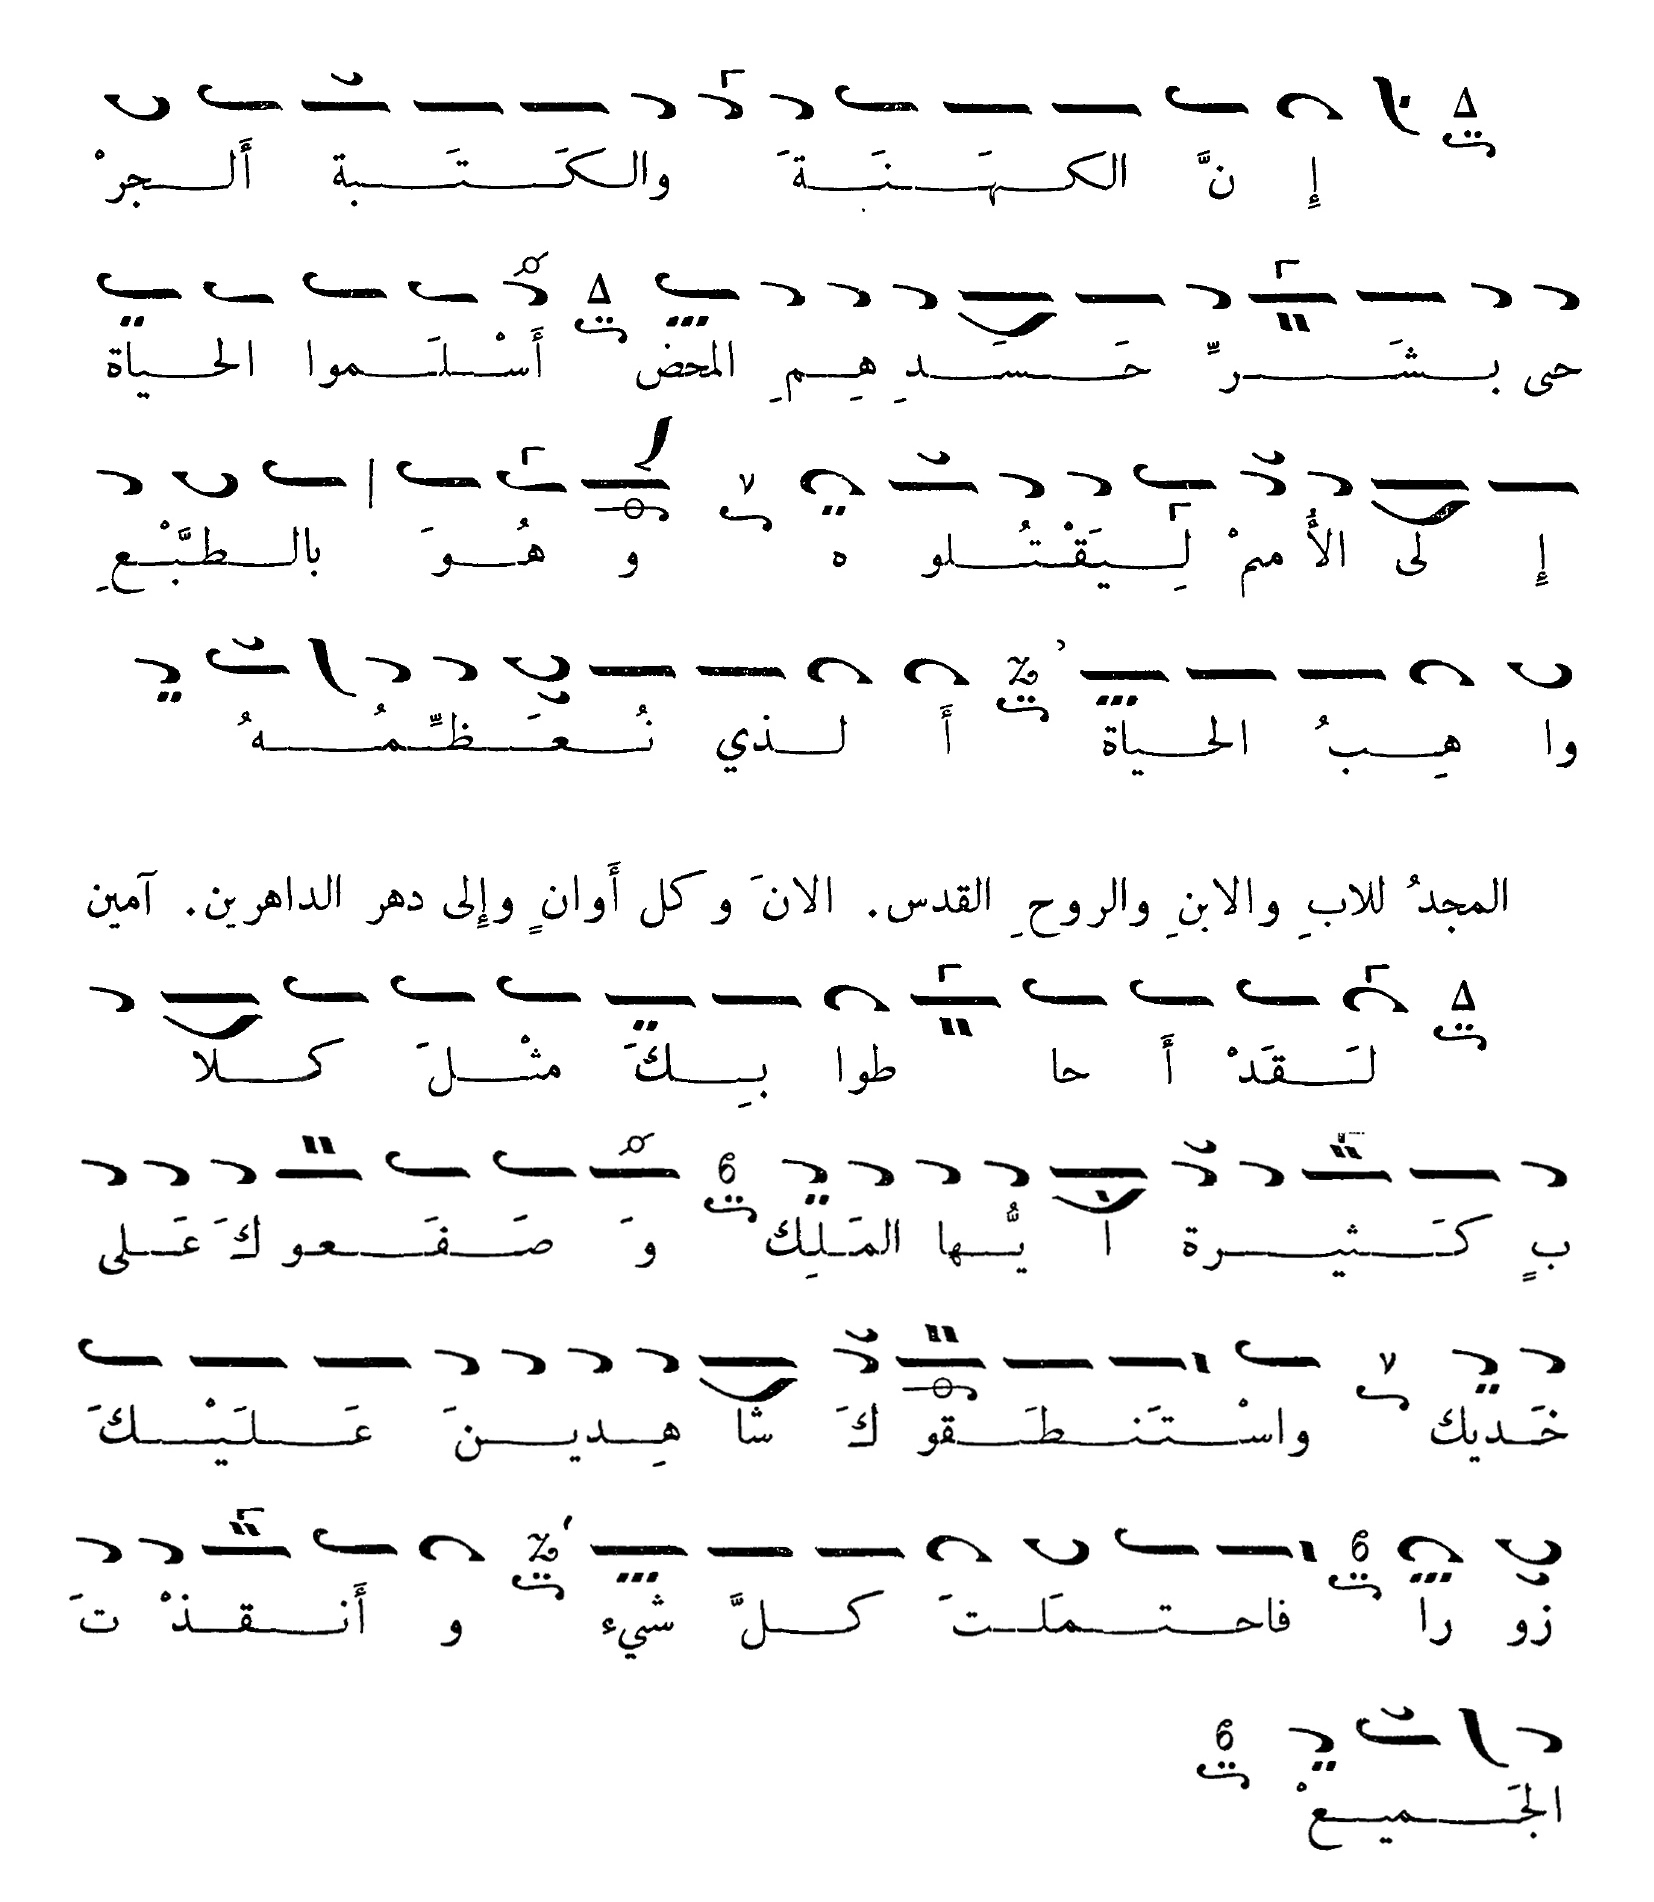 إِ نَّ الكـهَـنَـةَ والكَـتَـبة أَلـجرْ
حى بـشَـرِّ حَـسَـدِ هِـمِ المحض أَسْـلَـموا الحـياة
إِ لى الأُ ممْ لِـيَقْـتُـلو ه و هُـوَ بالـطبَّـعِ
وا هِـبُ الحـياة أَ لـذي نُـعَـظِّـمُـهُ
المجدُ للابِ والابنِ والروحِ القدس. الانَ وكل أَوانٍ وإِلى دهر الداهرين. آمين
لَـقَدْ أَ حا طوا بِـكَ مثْـلَ كـلا
بٍ كَـثيـرة أ يُّـها المَـلِك وَ صَـفَـعو كَ عَـلى
خَـديك واسْـتَـنـطَـقو كَ شا هِـديـنَ عَـلَيْـكَ
زو را فاحـتـمَلـتَ كـلَّ شيء و أَنـقـذْ تَ
الجَـميـعْ